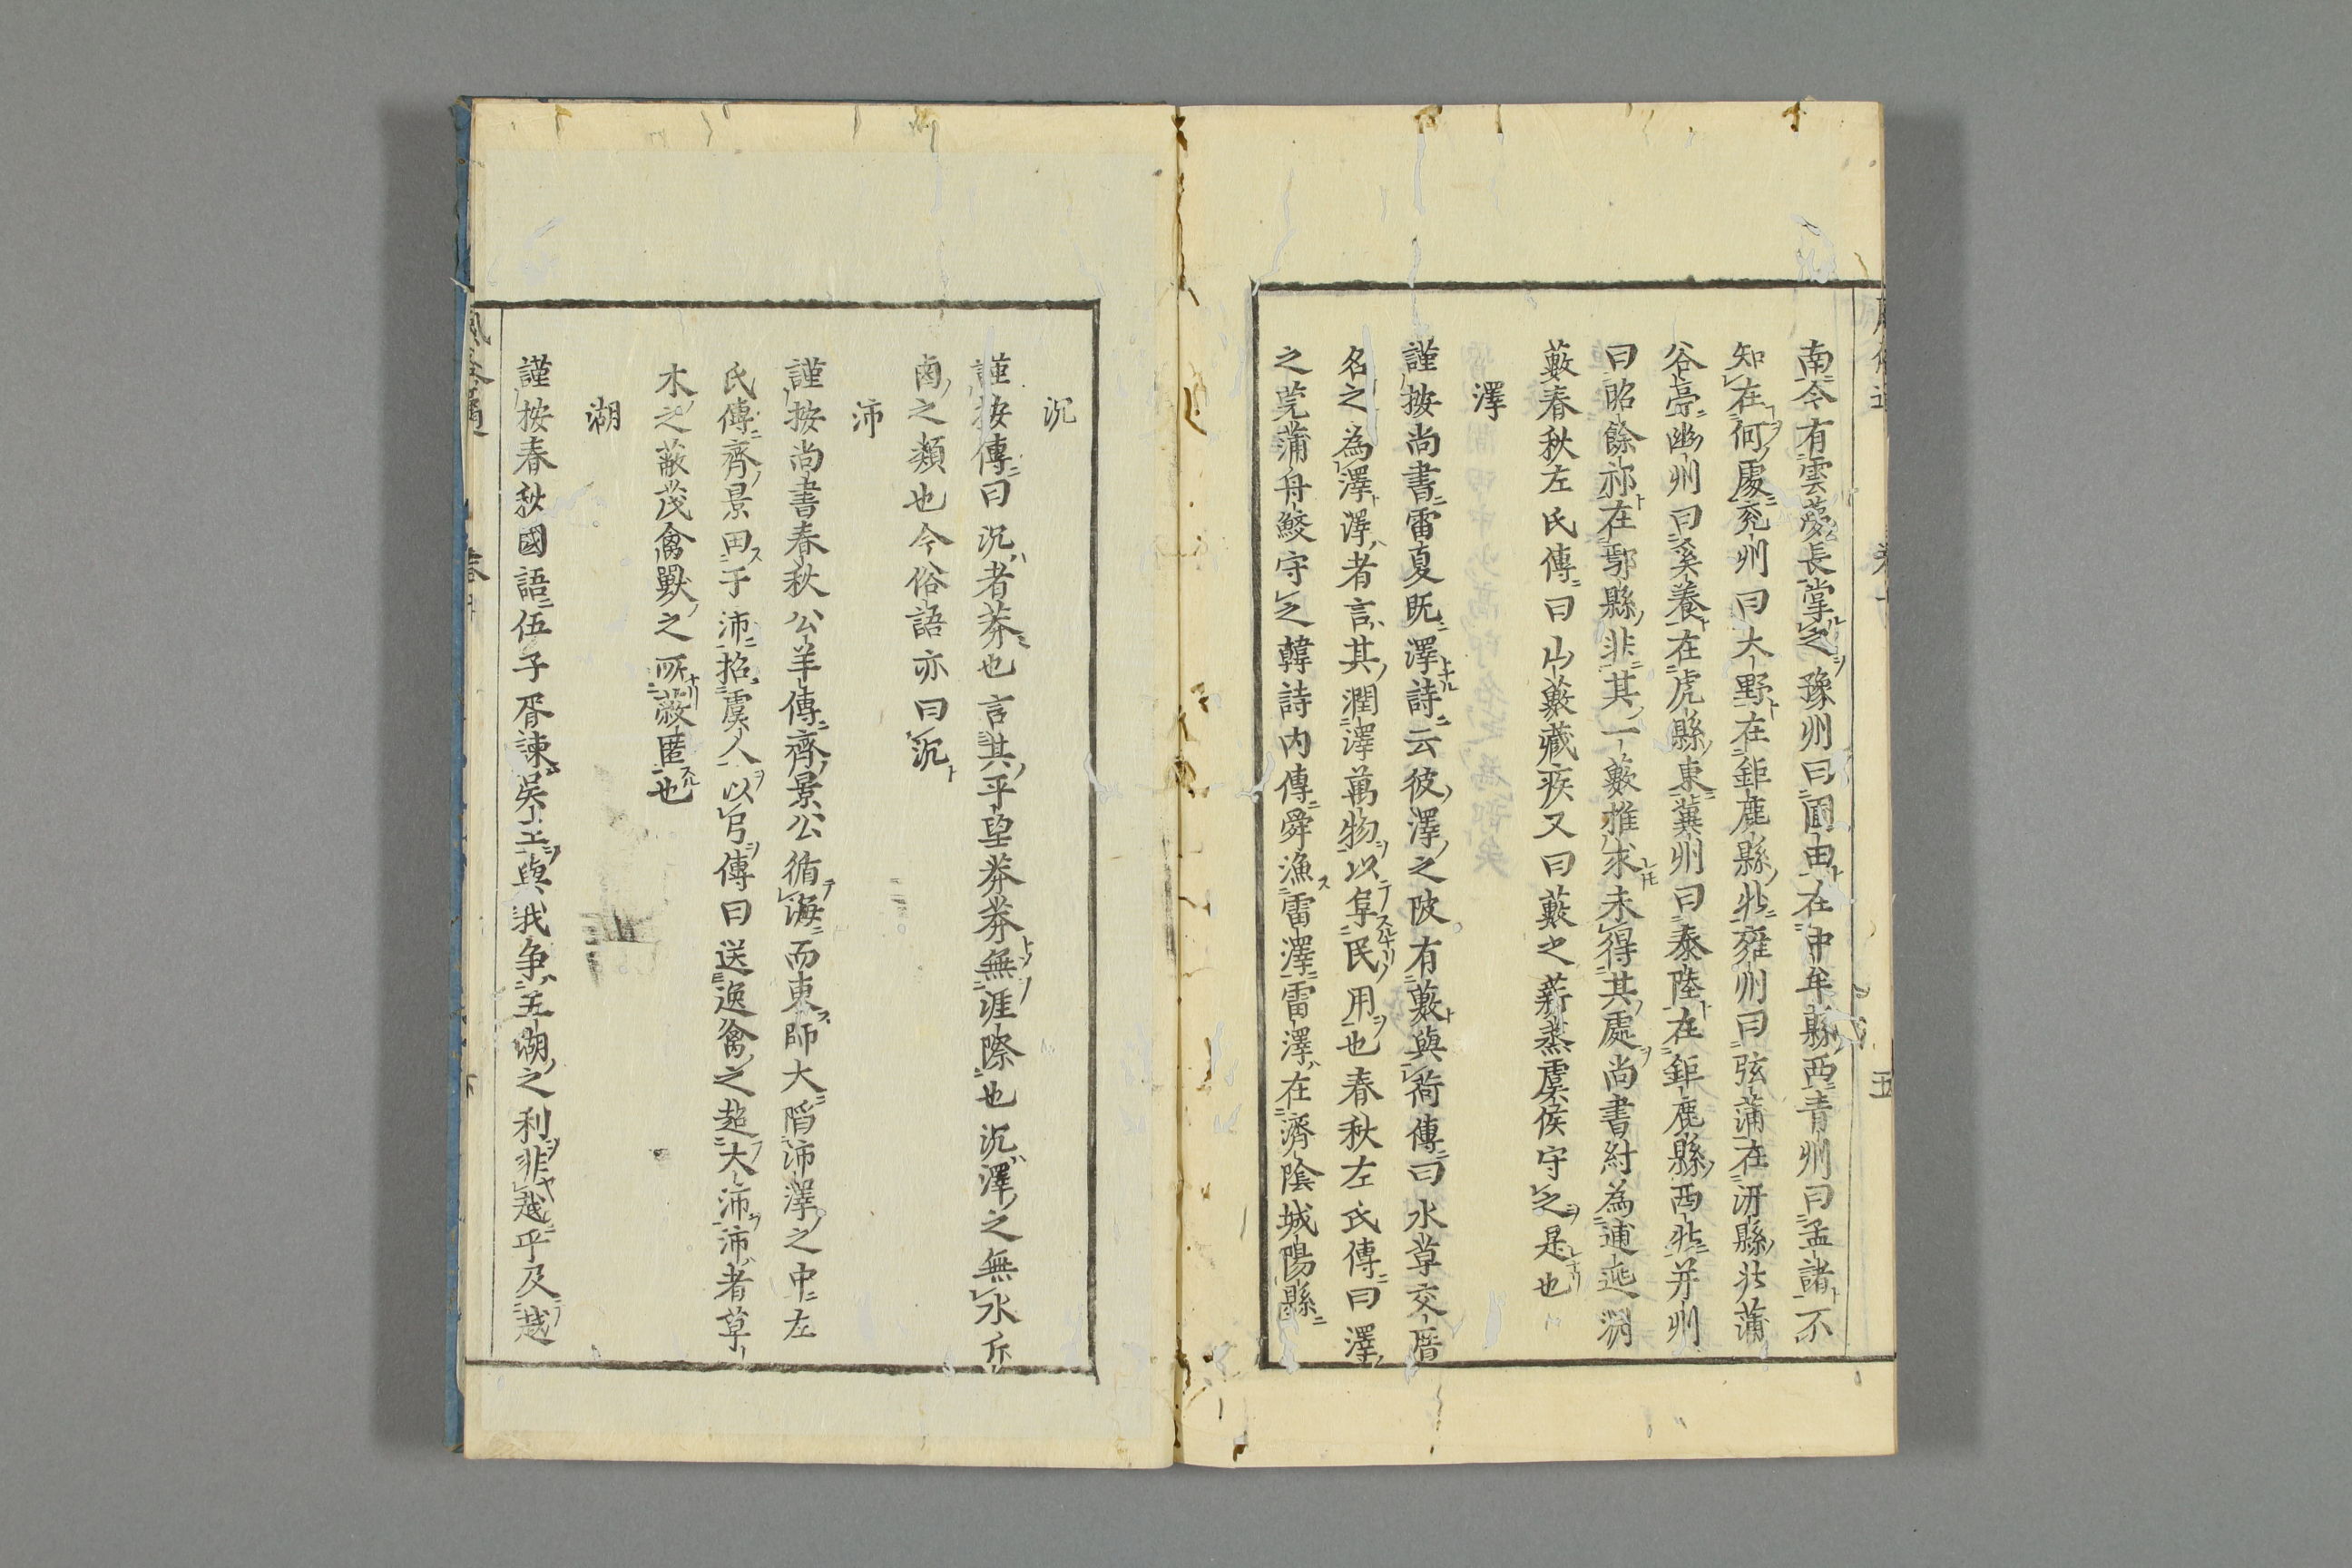 南今有雲夢長掌之豫州曰圃田在中牟縣西青州曰孟諸不
知在何處兖州曰大野在鉅鹿縣北雍州曰弦蒲在汧縣北蒲
谷亭幽州曰奚養在虎縣東冀州曰泰陸在鉅鹿縣西北并州
曰昭餘祁在鄔縣北其一藪推求未得其處尚書紂為逋逃淵
藪春秋左氏傳曰山藪藏疾又曰藪之薪蒸虞侯守之是也
澤
謹按尚書雷夏既澤詩云彼澤之陂有藪與荷傳曰水草交厝
名之為澤澤者言其潤澤萬物以阜民用也春秋左氏傳曰澤
之莞蒲舟鮫守之韓詩内傳舜漁雷澤雷澤在濟陰城陽縣
沉
謹按傳曰沉者莽也言其平望莽莽無涯際也沉澤之無水斥
鹵之類也今俗語亦曰沉
沛
謹按尚書春秋公羊傳齊景公循海而東師大陷沛澤之中左
氏傳齊景田于沛招虞人以弓傳曰送逸禽之超大沛沛者草
木之蔽茂禽獸之所蔽匿也
湖
謹按春秋國語伍子胥諫吳王與我争五湖之利非越乎及越